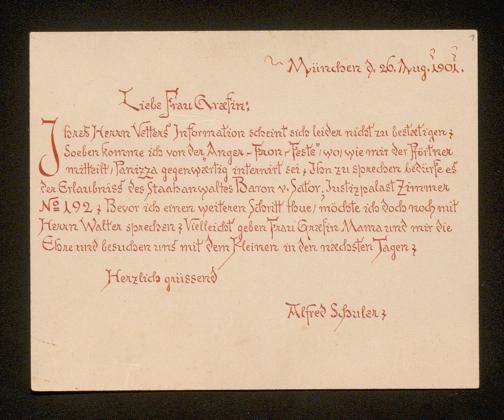 München d. 26. Aug. 1901.
Liebe Frau Græfin:
Ihres Herrn Vetters Information scheint sich leider nicht zu bestætigen;
Soeben komme ich von der „Anger-Fron-Feste" wo, wie mir der Pförtner
mitteilt, Panizza gegenwärtig internirt sei; Ihn zu sprechen bedürfe es
der Erlaubniss des Staatsanwaltes Baron v. Sator, Justizpalast Zimmer
No 192; Bevor ich einen weiteren Schritt thue, möchte ich doch noch mit
Herrn Walter sprechen; Vielleicht geben Frau Græfin Mama und mir die
Ehre und besuchen uns mit dem Kleinen in den næchsten Tagen;
Herzlich grüssend
Alfred Schuler;